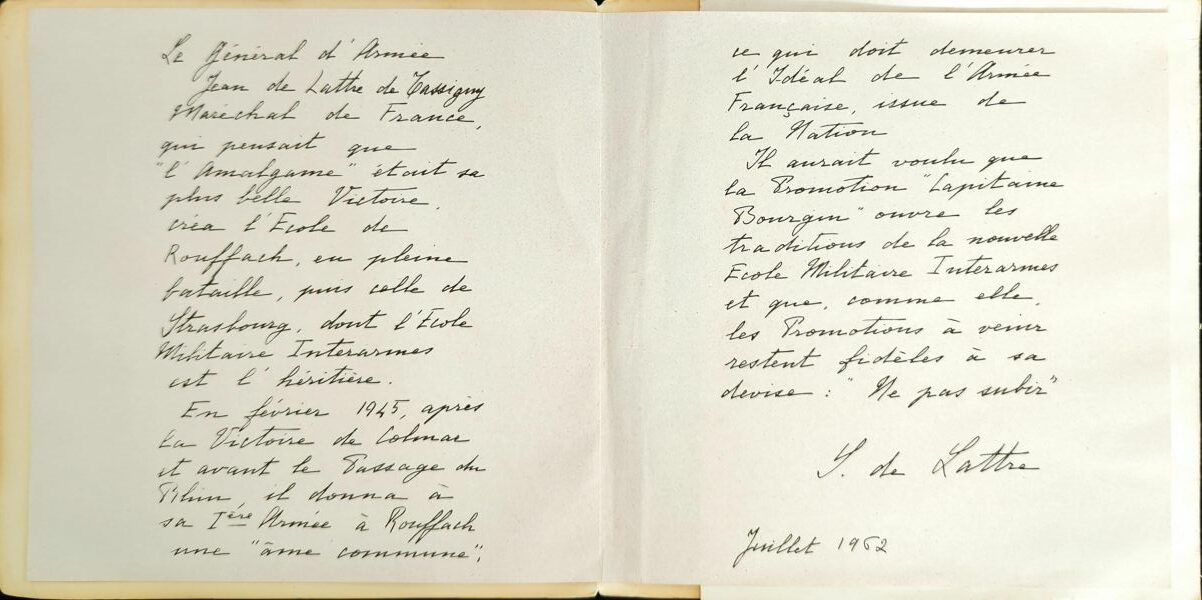 Le Général d'Armée
Jean de Lattre de Tassigny
Maréchal de France,
qui pensait que
"l'Amalgame" était sa
plus belle Victoire,
créa l'Ecole de
Rouffach, en pleine
bataille, puis celle de
Strasbourg, dont l'Ecole
Militaire Interarmes
est l'héritière.
En février 1945, après
la Victoire de Colmar
et avant le Passage du
Rhin, il donna à
sa Ière Armée à Rouffach
une "âme commune",
ce qui doit demeurer
l'Idéal de l'Armée
Française, issue de
la Nation
Il aurait voulu que
la Promotion "Capitaine
Bourgin" ouvre les
traditions de la nouvelle
Ecole Militaire Interarmes
et que, comme elle,
les Promotions à venir
restent fidèles à sa
devise : "Ne pas subir"
S. de Lattre
Juillet 1962